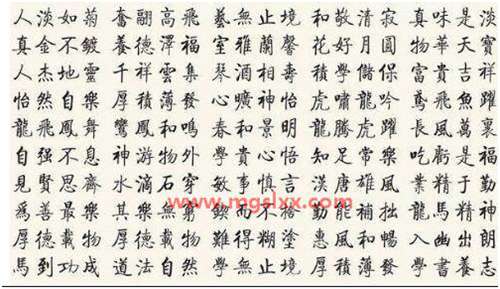 人淡如菊 奮翮高飛 藝無止境 和敬清寂 真味是淡
真金不鍍 養德澤福 室雅蘭馨 花好月圓 物華天寶
人杰地靈 千祥雲集 琴酒相壽 學儲保 富貴吉祥
怡然自樂 厚積薄發 曠神怡 虎嘯龍吟 鳶飛魚躍
龍飛鳳舞 鸞鳳和鳴 春和景明 龍騰虎躍 長風萬里
自强不息 神游物外 學貴心悟 知足常樂 吃虧是福
見賢思齊 水滴石穿 敏事慎言 漢唐雄風 業精于勤
www.mgslxx.com
爲善最樂 其樂無窮 鍥而不捨 勤能補拙 龍馬精神
厚德載物 厚德載物 難得糊塗 惠風和暢 入幽出朗
馬到功成 道法自然 學無止境 厚積薄發 學書養志